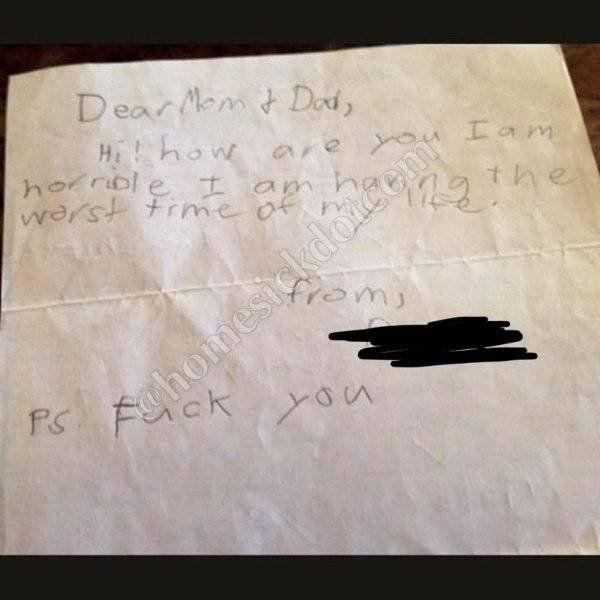 Dear Mom & Dad,
Hi! how are you I am
horrible I am having the
worst time of my life.
from,
PS. Fuck you
@homesickdotcom